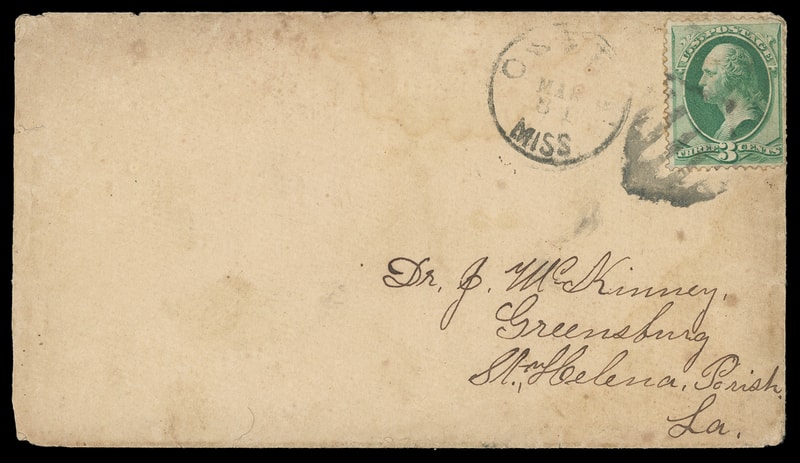 MISS
U.S. POSTAGE
THREE 3 CENTS
Dr. J. McKinney,
Greensburg
St. Helena, Parish.
La.